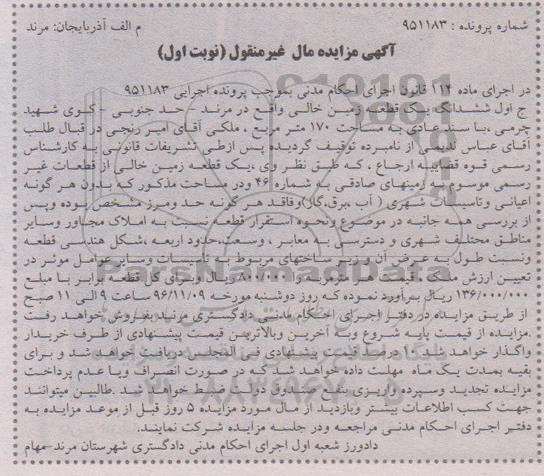 شماره پرونده : ۹۵۱۱۸۳ م الف آذربایجان: مرند
آگهی مزایده مال غیرمنقول (نوبت اول)
در اجرای ماده ۱۱۴ قانون اجرای احکام مدنی بموجب پرونده اجرایی ۹۵۱۱۸۳
ج اول ششدانگ یک قطعه زمین خالی واقع در مرند - حد جنوبی - کوی شهید
چرمی ،با سند عادی به مساحت ۱۷۰ متر مربع ، ملکی آقای امیر رنجی در قبال طلب
آقای عباس ندیمی از نامبرده توقیف گردیده پس ازطی تشریفات قانونی به کارشناس
رسمی قوه قضاییه ارجاع ، که طبق نظر وی ،یک قطعه زمین خالی از قطعات غیر
رسمی موسوم به زمینهای صادقی به شماره ۴۶ ودر مساحت مذکور که بدون هر گونه
اعیانی وتاسیسات شهری ( آب ،برق،گاز)وفاقد هر گونه حد ومرز مشخص بوده وپس
از بررسی همه جانبه در موضوع ونحوه استقرار قطعه نسبت به املاک مجاور وسایر
مناطق مختلف شهری و دسترسی به معابر ، وسعت،حدود اربعه ،شکل هندسی قطعه
ونسبت طول به عرض آن ودیگر ساختهای مربوط به تأسیسات وسایر عوامل موثر در
تعیین ارزش ملک ، قیمت هر مترمربع را ۸۰۰۰۰۰ ریال وبرای کل قطعه برابر با مبلغ
۱۳۶/۰۰۰/۰۰۰ ریال برآورد نموده که روز دوشنبه مورخه ۹۶/۱۱/۰۹ ساعت ۹ الی ۱۱ صبح
از طریق مزایده در دفتر اجرای احکام مدنی دادگستری مرند بفروش خواهد رفت
.مزایده از قیمت پایه شروع وبه آخرین وبالاترین قیمت پیشنهادی از طرف خریدار
واگذار خواهد شد ۱۰ درصد قیمت پیشنهادی فی المجلس دریافت خواهد شد و برای
بقیه بمدت یک ماه مهلت داده خواهد شد که در صورت انصراف ویا عدم پرداخت
مزایده تجدید وسپرده واریزی بنفع صندوق دولت ضبط خواهد شد. طالبین میتوانند
جهت کسب اطلاعات بیشتر وبازدید از مال مورد مزایده ۵ روز قبل از موعد مزایده به
دفتر اجرای احکام مدنی مراجعه ودر جلسه مزایده شرکت نمایند.
دادورز شعبه اول اجرای احکام مدنی دادگستری شهرستان مرند-مهام
ParsNamadData
۰۲۱-۸۸۳۴۹۶۷۰-۵